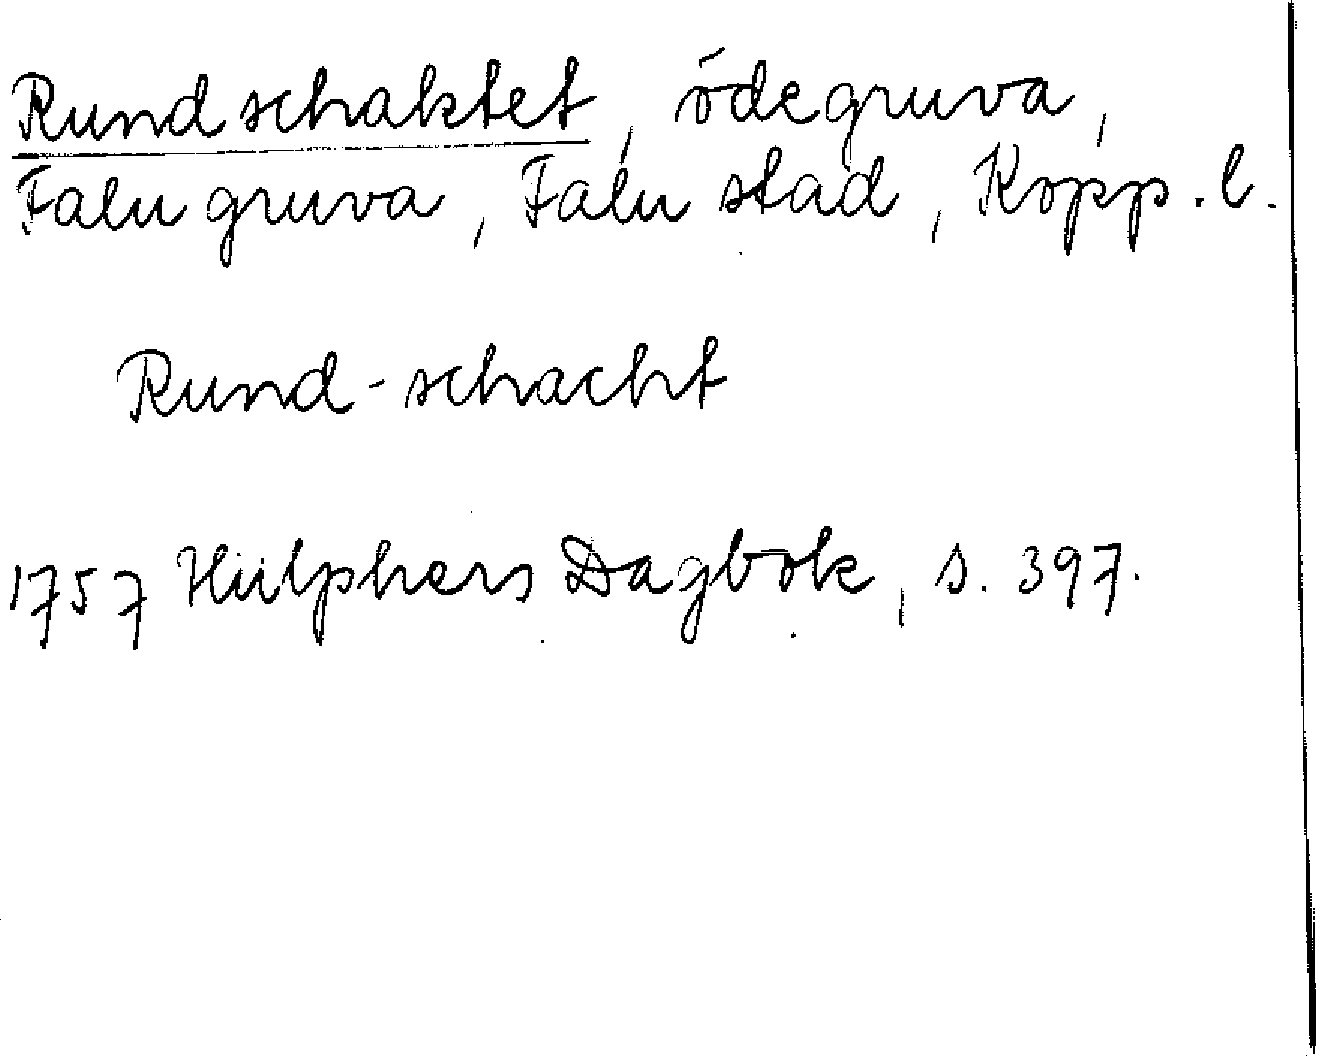 Rundschaktet, ödegruva,
Falu gruva, Falu stad, Kopp. l.
Rund-schacht
1757 Hülphers Dagbok, s. 397.